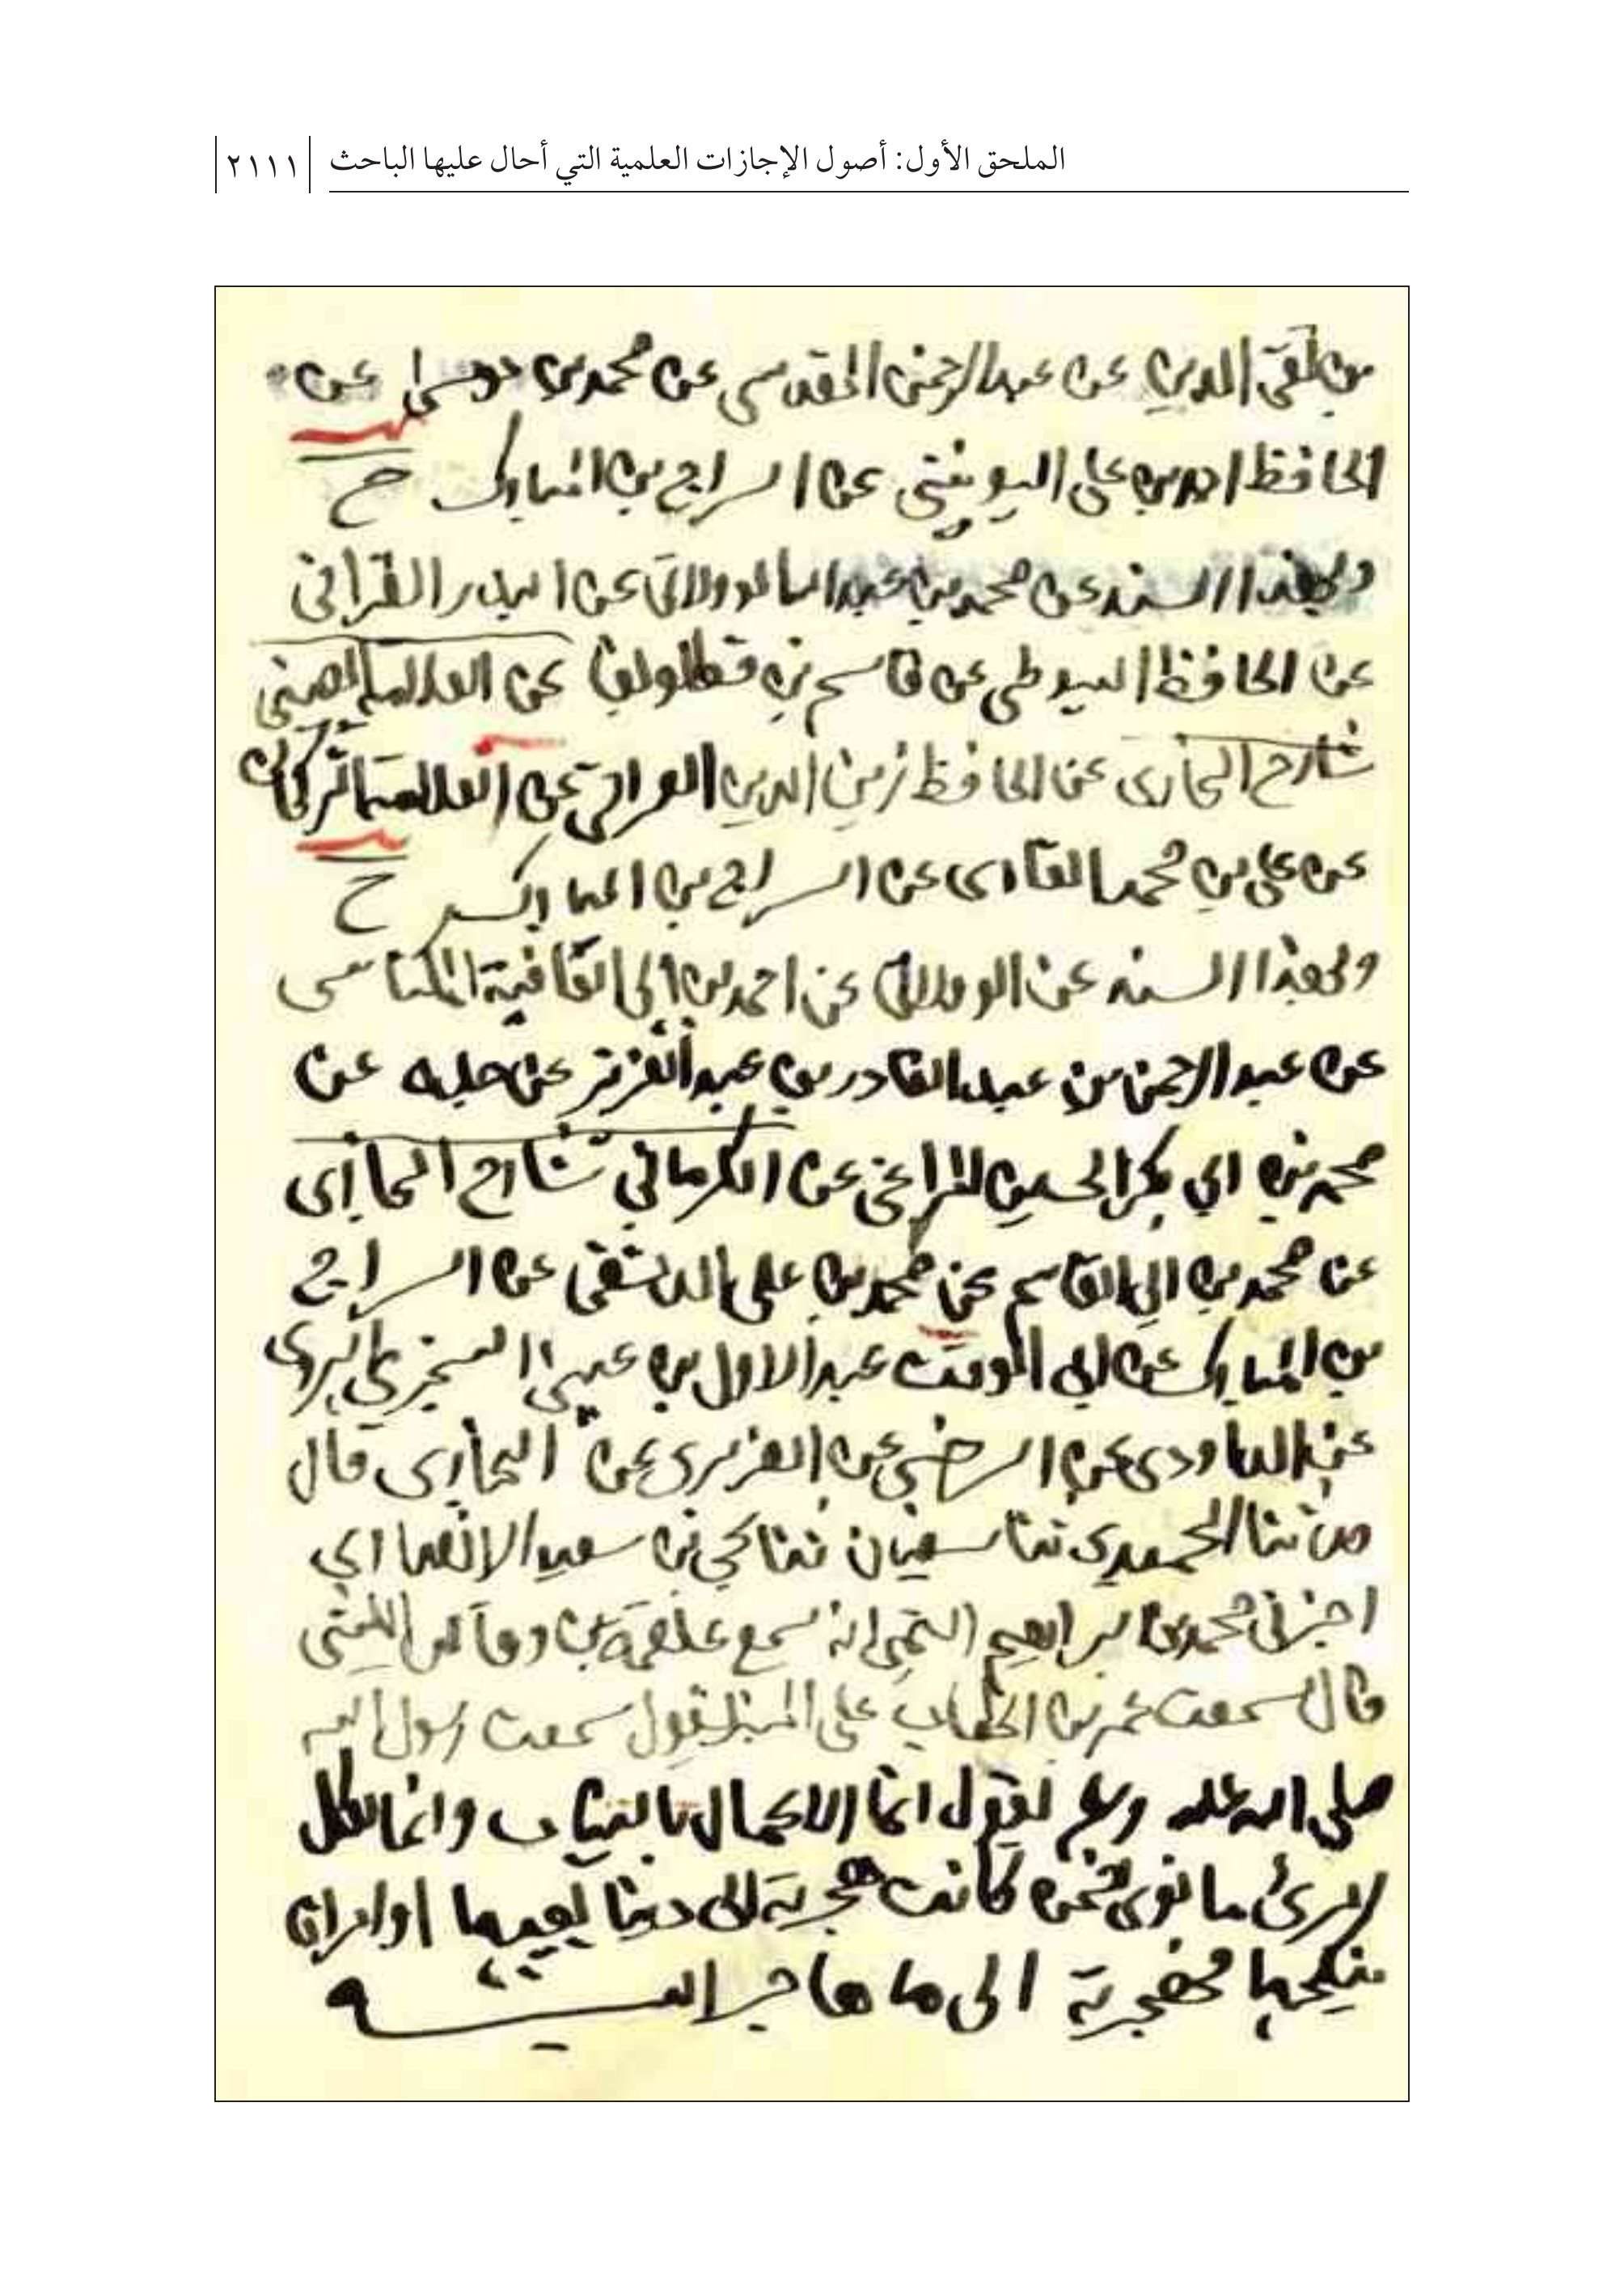 الملحق الأول: أصول الإجازات العلمية التي أحال عليها الباحث ٢١١١
بن تقي الدين عن عبد الرحمن المقدسي عن محمد بن موسى عن
الحافظ احمد بن علي اليونيني عن السراج بن المبارك ح
وبهذا السند عن محمد بن عبد الله الولاتي عن البدر القرافي
عن الحافظ السيوطي عن قاسم بن قطلوبغا عن العلامة العيني
شارح البخاري عن الحافظ زين الدين العراقي عن العلامة التركماني
عن علي بن محمد القاري عن السراج بن المبارك ح
وبهذا السند عن الولاتي عن احمد بن ابي العافية المكناسي
عن عبد الرحمن بن عبد القادر بن عبد العزيز عن جده عن
محمد بن ابي بكر الحسين المراغي عن الكرماني شارح البخاري
عن محمد بن ابي القاسم عن محمد بن علي الدمشقي عن السراج
بن المبارك عن ابي الوقت عبد الاول بن عيسى السجزي الهروي
عن الداودي عن السرخسي عن الفربري عن البخاري قال
ثنا الحميدي ثنا سفيان ثنا يحيى بن سعيد الانصاري
اخبرني محمد بن ابراهيم التيمي انه سمع علقمة بن وقاص الليثي
قال سمعت عمر بن الخطاب على المنبر يقول سمعت رسول الله
صلى الله عليه وسلم يقول انما الاعمال بالنيات وانما لكل
امرئ ما نوى فمن كانت هجرته الى دنيا يصيبها او امراة
ينكحها فهجرته الى ما هاجر اليه